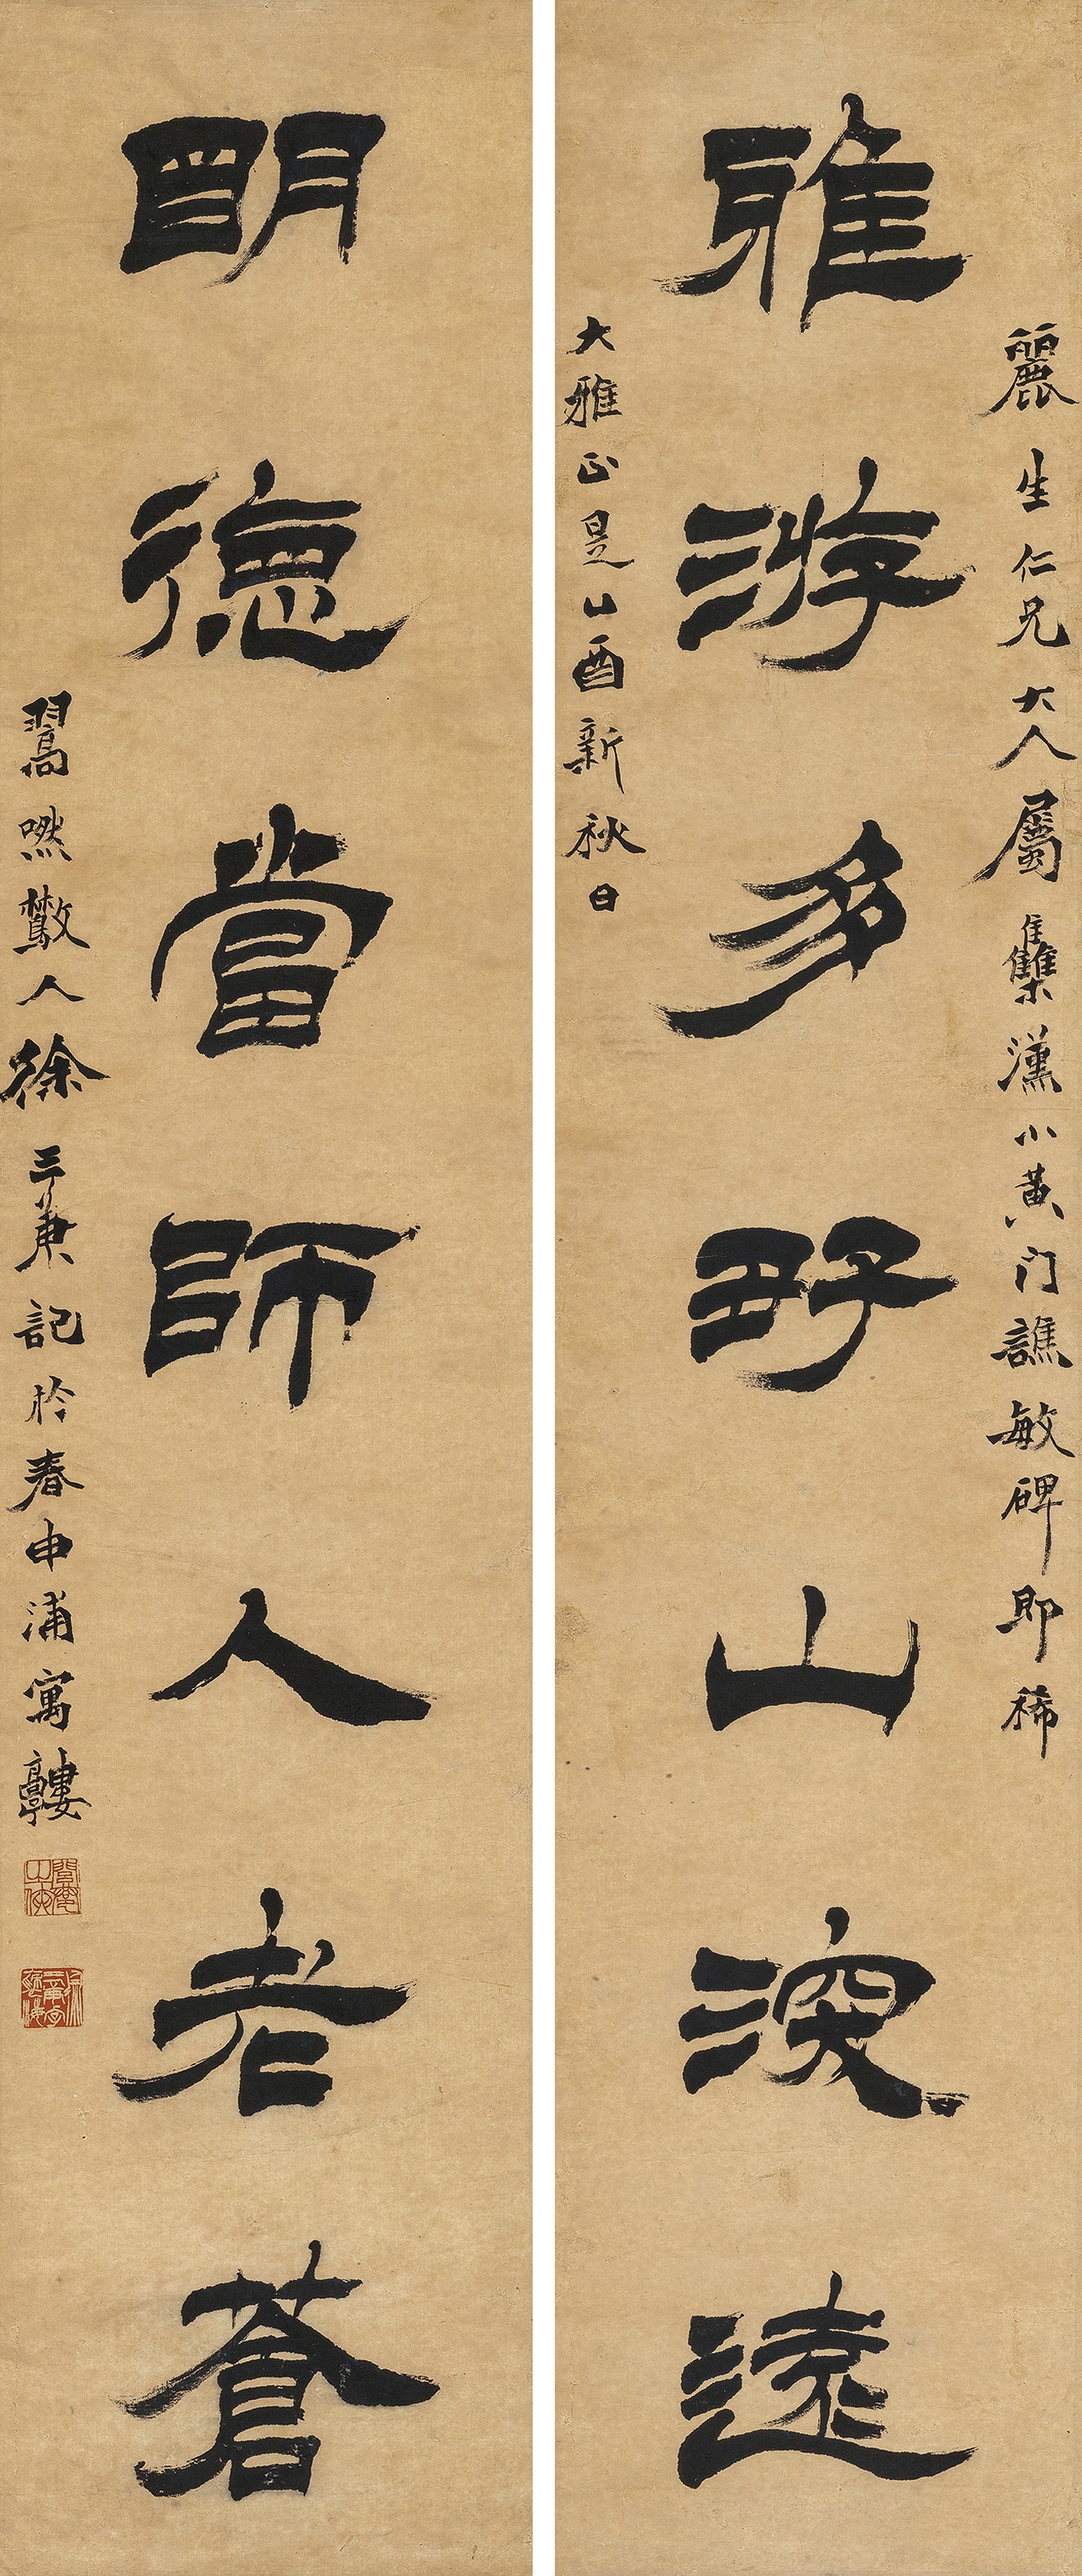 麗生仁兄大人屬集漢小黃门譙敏碑即稀
雅游多野山深遠
大雅正是酉新秋日
明德當師人老蒼
翯嘫人徐三庚記於春申浦寓